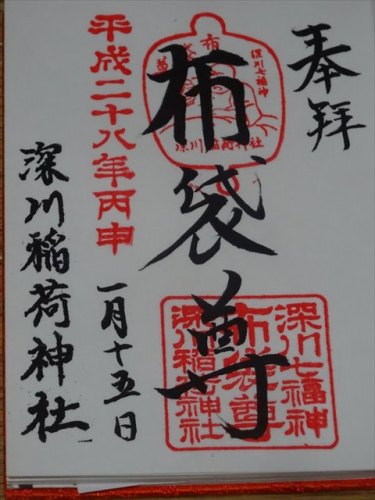 奉拝
布袋尊
布
袋
尊
深川七福神
深川稲荷神社
深川七福神
布袋尊
深川稲荷神社
平成二十八年丙申
一月十五日
深川稲荷神社